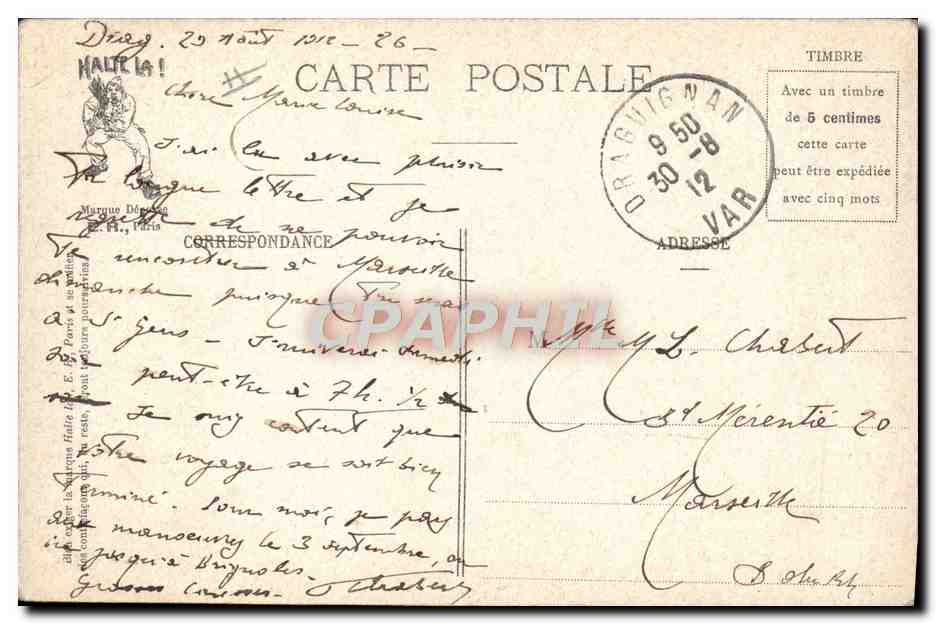 Drag. 29 Août 1912 - 26 -
HALTE LA !
CARTE POSTALE
TIMBRE
Avec un timbre
de 5 centimes
cette carte
peut être expédiée
avec cinq mots
DRAGUIGNAN
9 50
30 -8
12
VAR
Chère Marie Louise
J'ai lu avec plaisir
Ta longue lettre et je
regrette de ne pouvoir
Te rencontrer à Marseille
dimanche puisque Tu vas
à St Gens - J'arriverai samedi
soir peut-être à 7h. 1/2
Je suis content que
votre voyage se soit bien
Terminé. Pour moi, je pars
aux manoeuvres le 3 septembre, on
ira jusqu'à Brignoles.
Grosses caresses. Chabert
Marque Déposée
E. R., Paris
CORRESPONDANCE
ADRESSE
Bien exiger la marque Halte là, E. R., Paris et se méfier
des contrefaçons qui, du reste, seront toujours poursuivies.
CPAPHIL
M Mlle M L. Chabert
Bd Mérentié 20
Marseille
B du Rh